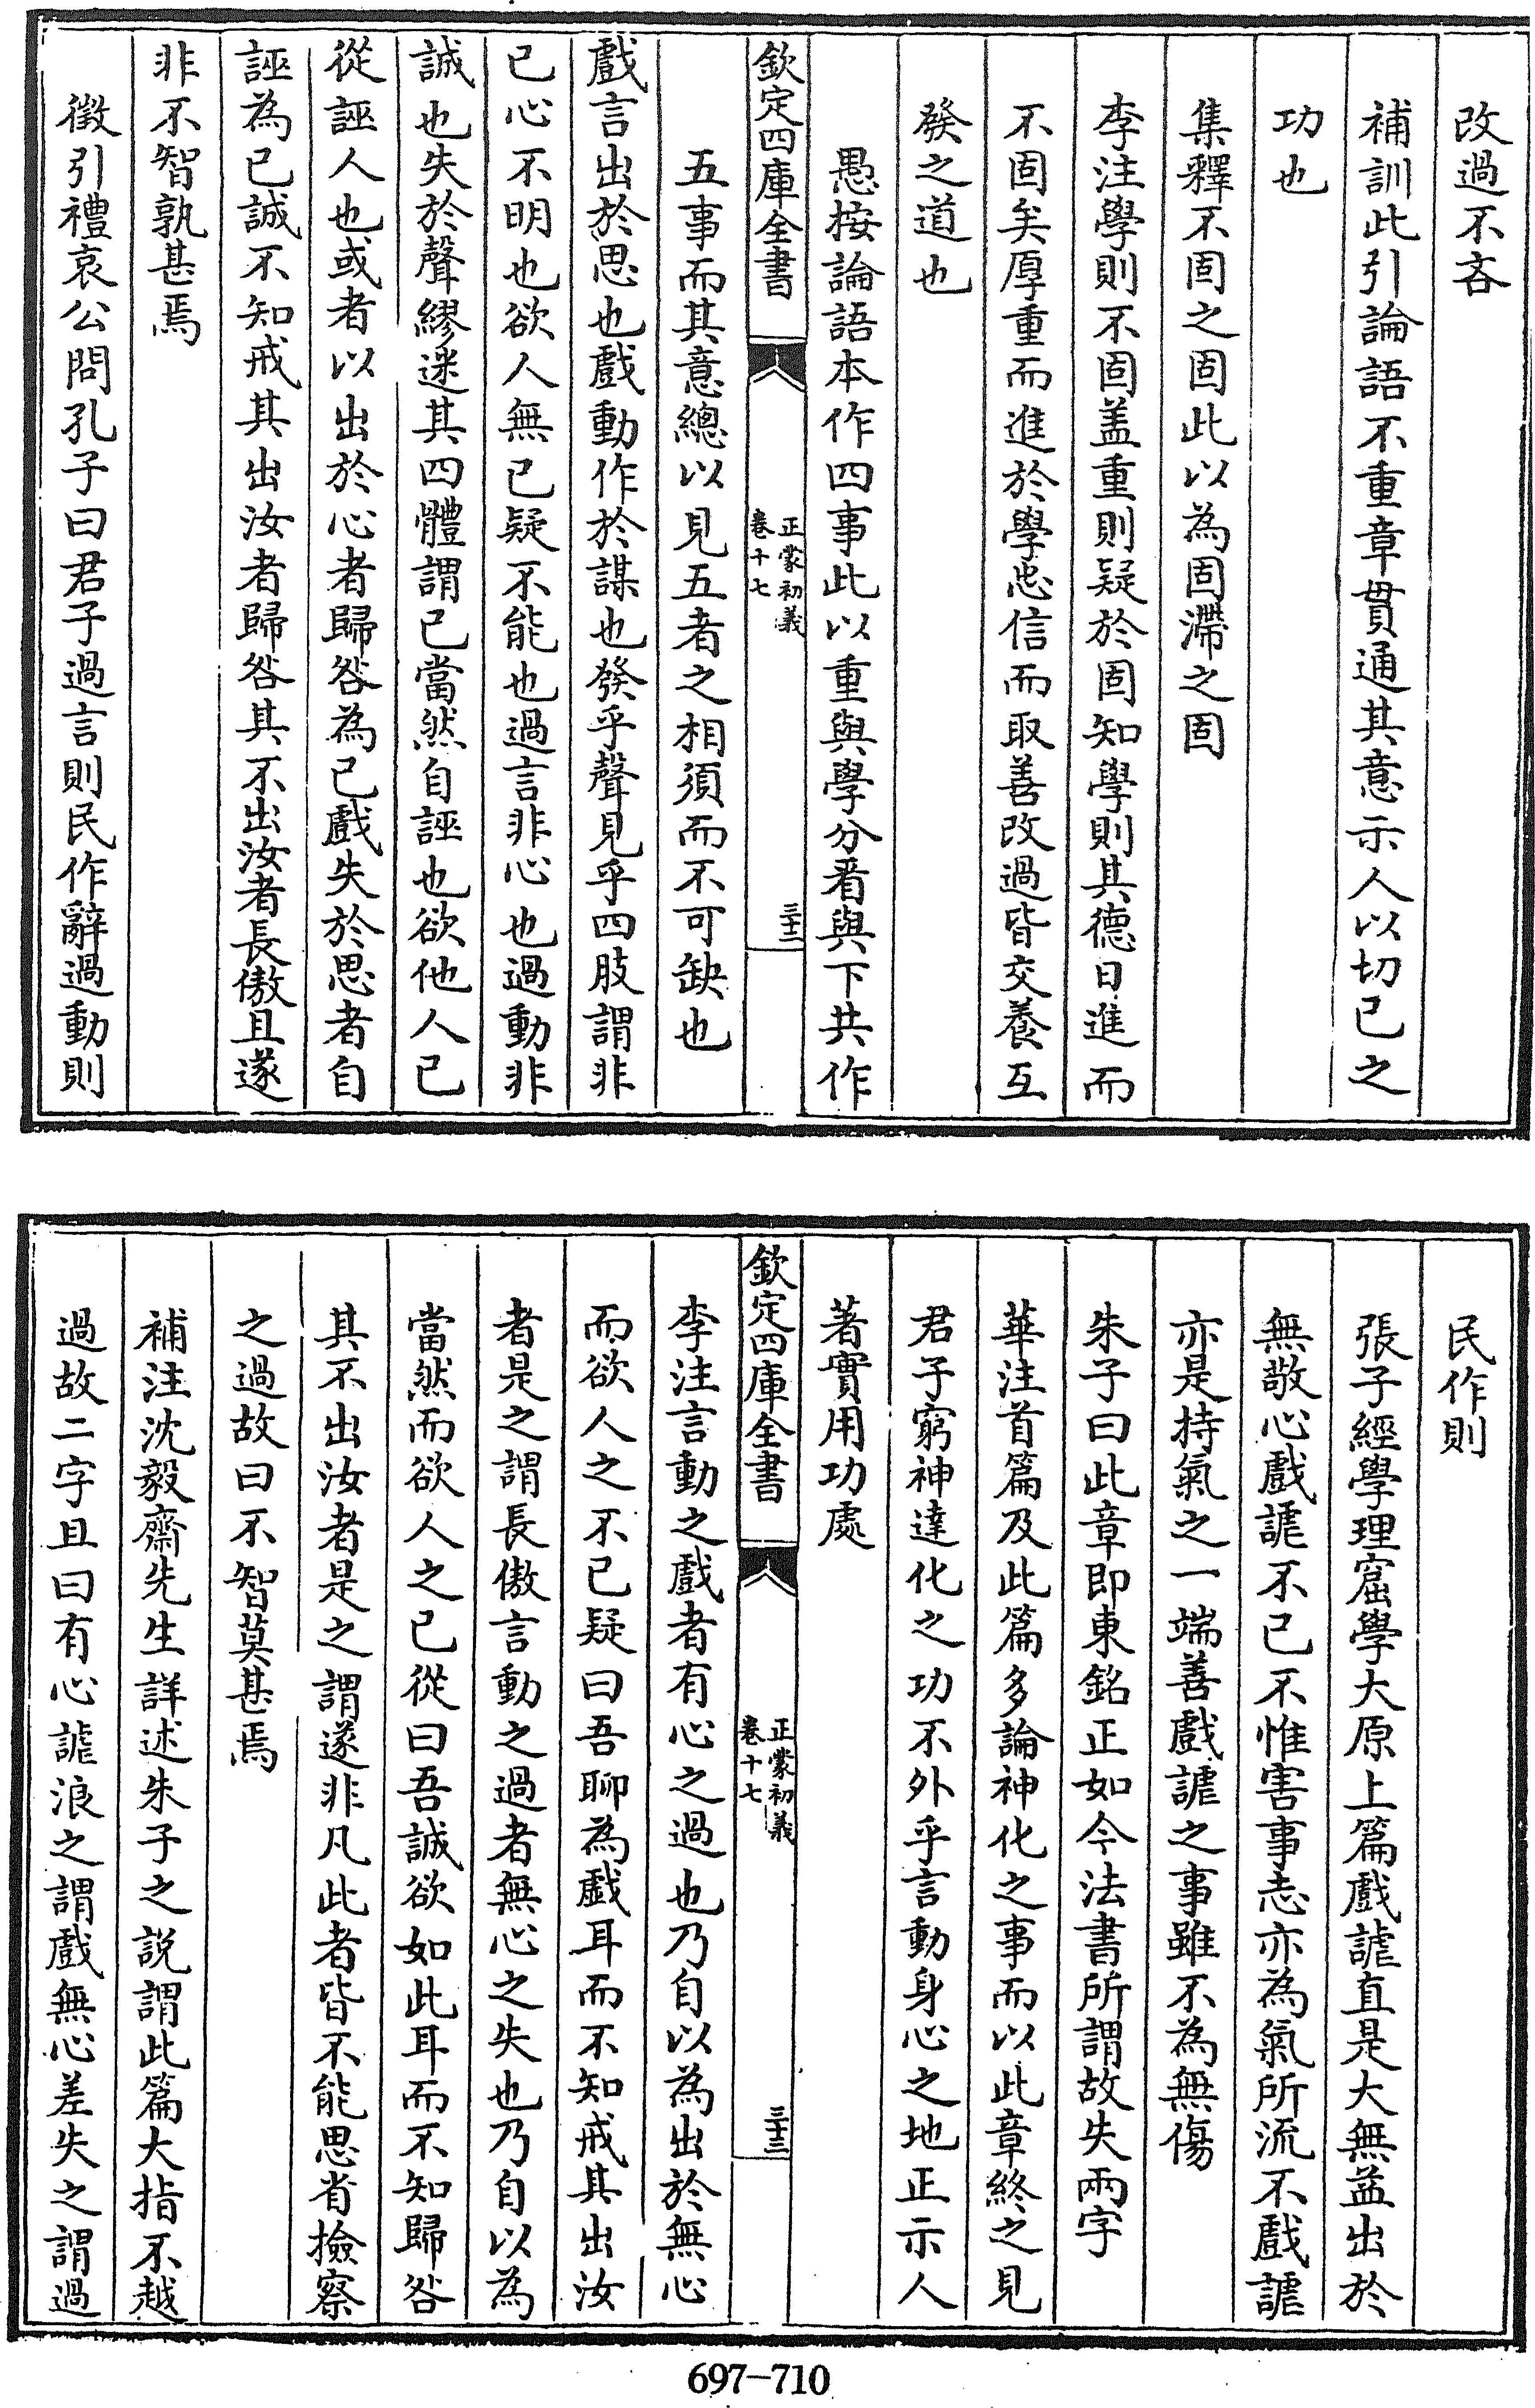 改過不吝
補訓此引論語不重章貫通其意示人以切已之
功也
集釋不固之固此以為固滯之固
李注學則不固盖重則疑於固知學則其德日進而
不固矣厚重而進於學忠信而取善改過皆交養互
發之道也
愚按論語本作四事此以重與學分看與下共作
欽定四庫全書
正蒙初義
卷十七
三十二
五事而其意總以見五者之相須而不可缺也
戲言出於思也戲動作於謀也發乎聲見乎四肢謂非
已心不明也欲人無已疑不能也過言非心也過動非
誠也失於聲繆迷其四體謂已當然自誣也欲他人已
從誣人也或者以出於心者歸咎為已戲失於思者自
誣為已誠不知戒其出汝者歸咎其不出汝者長傲且遂
非不智孰甚焉
徵引禮哀公問孔子曰君子過言則民作辭過動則
民作則
張子經學理窟學大原上篇戲謔直是大無益出於
無敬心戲謔不已不惟害事志亦為氣所流不戲謔
亦是持氣之一端善戲謔之事雖不為無傷
朱子曰此章即東銘正如今法書所謂故失兩字
華注首篇及此篇多論神化之事而以此章終之見
君子窮神達化之功不外乎言動身心之地正示人
著實用功處
欽定四庫全書
正蒙初義
卷十七
三十三
李注言動之戲者有心之過也乃自以為出於無心
而欲人之不已疑曰吾聊為戲耳而不知戒其出汝
者是之謂長傲言動之過者無心之失也乃自以為
當然而欲人之已從曰吾誠欲如此耳而不知歸咎
其不出汝者是之謂遂非凡此者皆不能思省撿察
之過故曰不智莫甚焉
補注沈毅齋先生詳述朱子之說謂此篇大指不越
過故二字且曰有心謔浪之謂戲無心差失之謂過
697-710